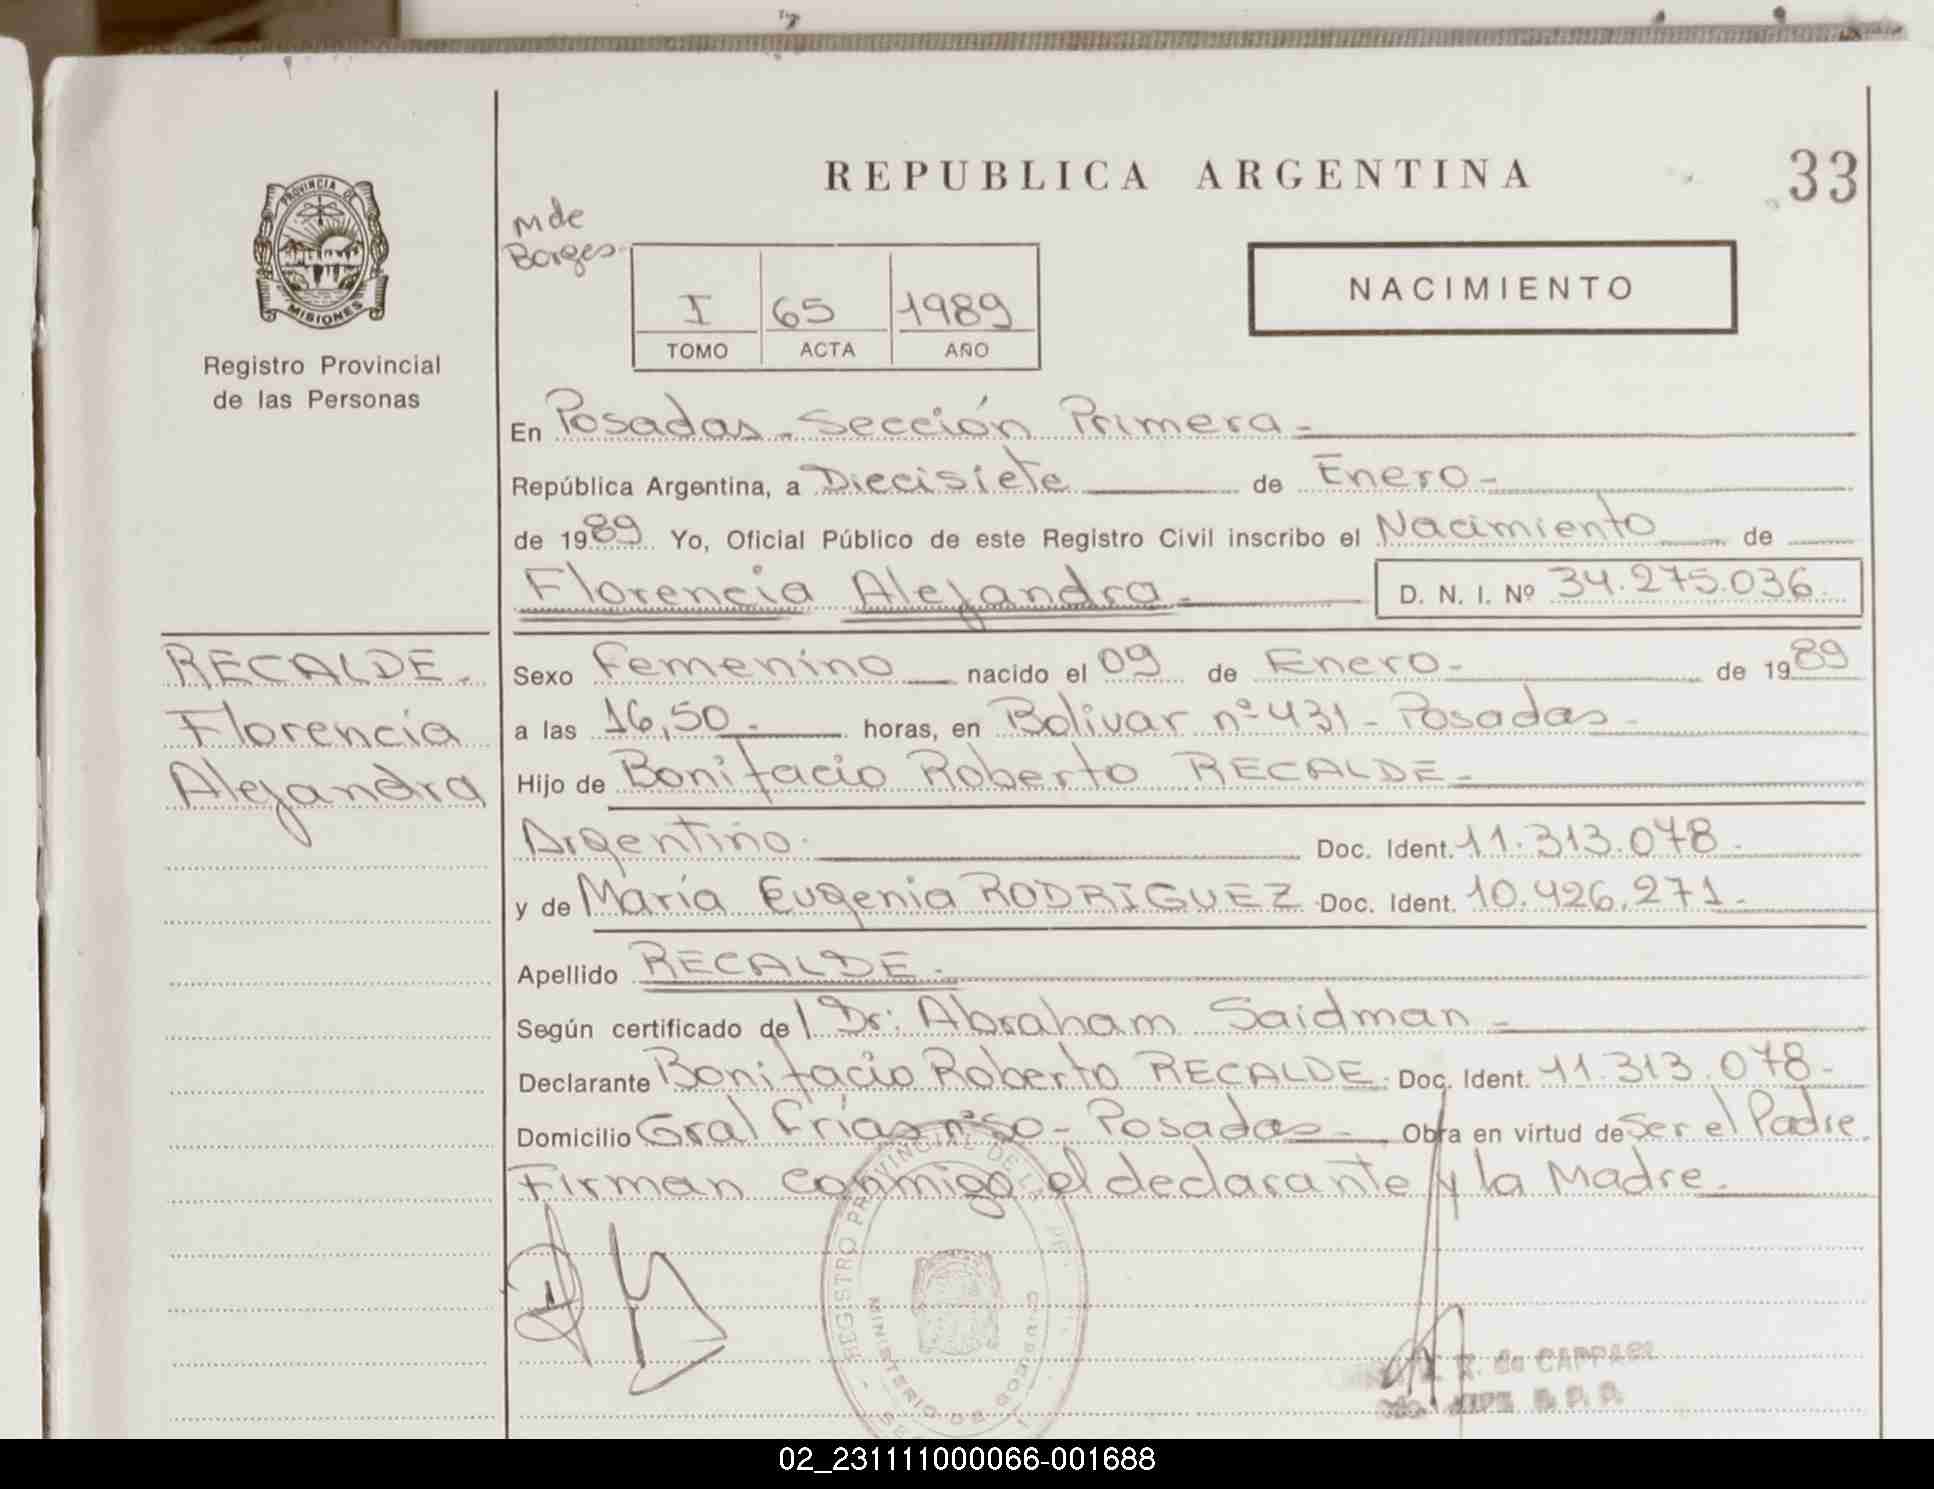 REPUBLICA ARGENTINA
33
PROVINCIA DE
MISIONES
Registro Provincial
de las Personas
M de
Borges
I 65 1989
TOMO ACTA AÑO
NACIMIENTO
En Posadas - Sección Primera -
República Argentina, a Diecisiete de Enero -
de 1989 Yo, Oficial Público de este Registro Civil inscribo el Nacimiento de
Florencia Alejandra - D. N. I. Nº 34.275.036
RECALDE -
Florencia
Alejandra
Sexo Femenino nacido el 09 de Enero - de 1989
a las 16,50 - horas, en Bolivar nº 431 - Posadas -
Hijo de Bonifacio Roberto RECALDE -
Argentino. Doc. Ident. 11.313.078 -
y de María Eugenia RODRIGUEZ Doc. Ident. 10.426.271 -
Apellido RECALDE -
Según certificado de l Dr. Abraham Saidman -
Declarante Bonifacio Roberto RECALDE. Doc. Ident. 11.313.078 -
Domicilio Gral Frías - Posadas - Obra en virtud de Ser el Padre
Firman conmigo el declarante y la Madre.
REGISTRO PROVINCIAL DE
MINISTERIO DE
de CAPPARI
02_231111000066-001688